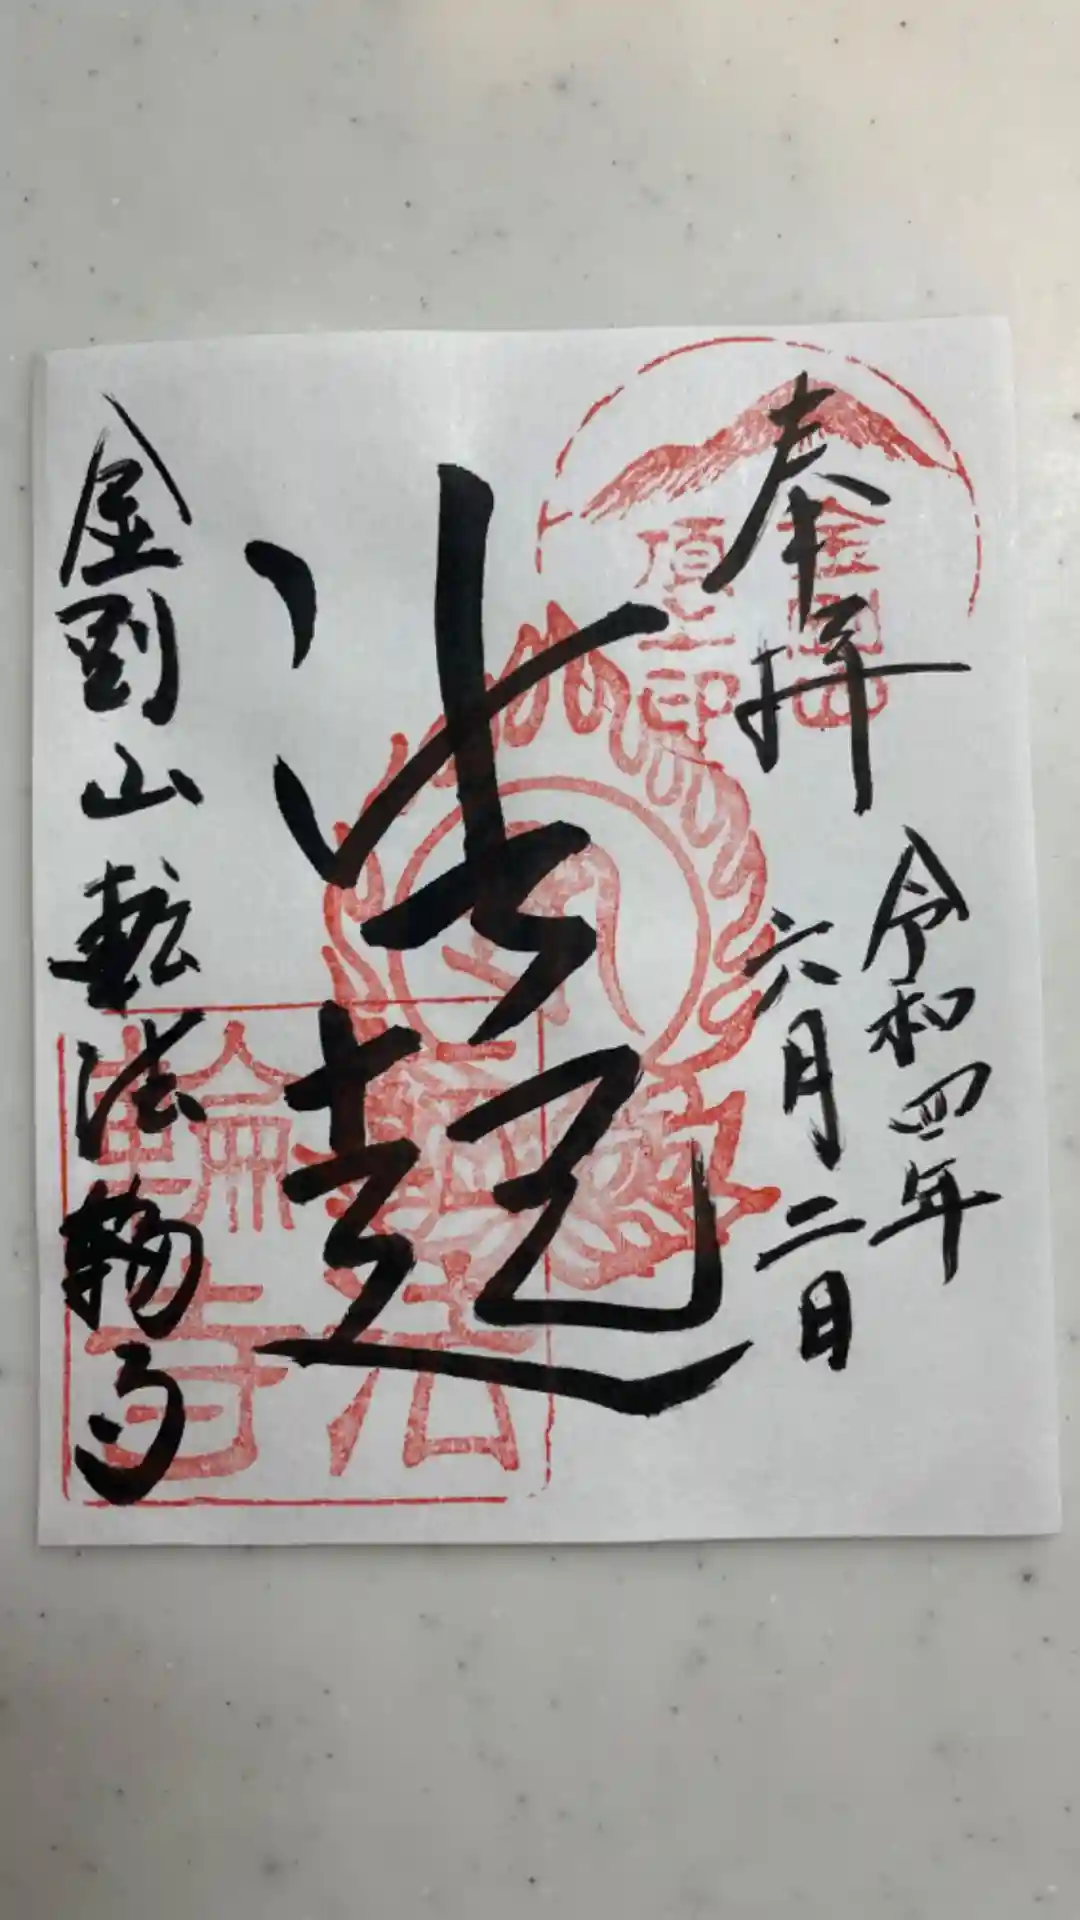 奉拝
令和四年
六月二日
法起
金剛山転法輪寺
金剛山
頂上印
法輪寺